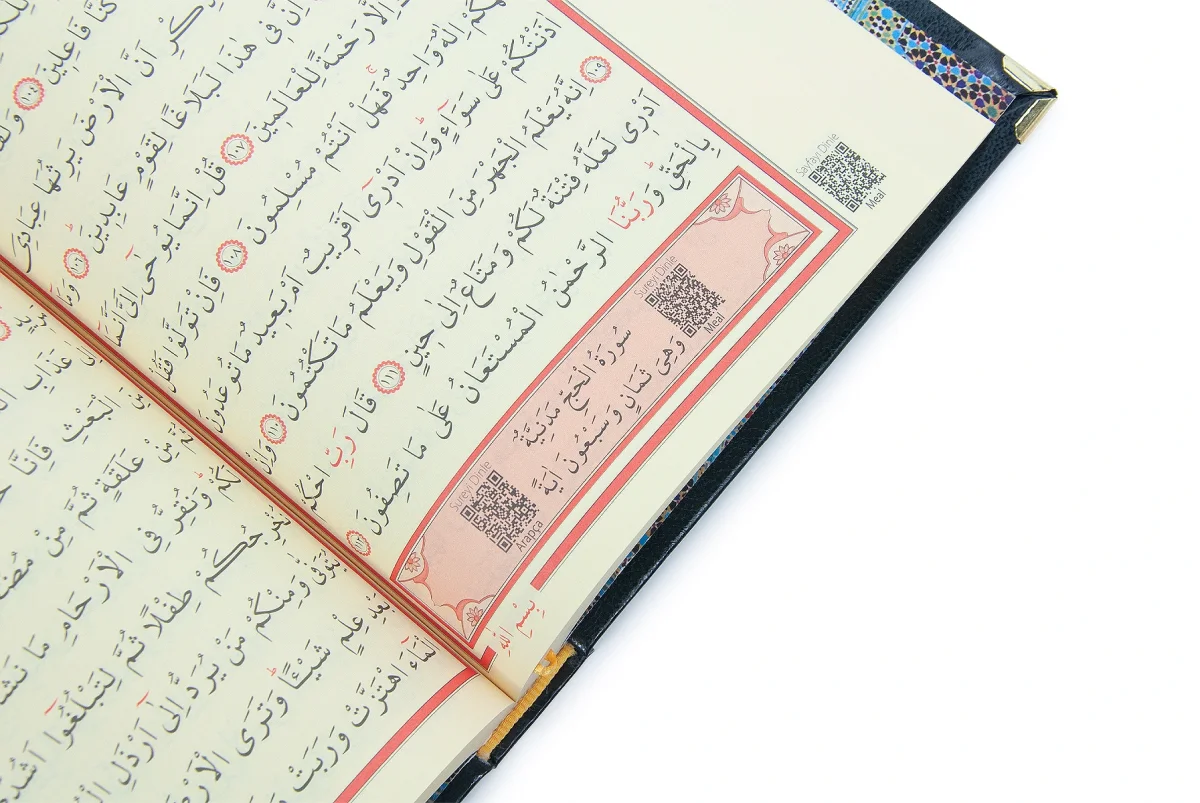 كُنَّا فَاعِلِينَ ١٠٤
اَنَّ الْاَرْضَ يَرِثُهَا عِبَادِيَ
اِنَّ فِي هٰذَا لَبَلَاغًا لِقَوْمٍ عَابِدِينَ ١٠٦ وَمَٓا
اِلَّا رَحْمَةً لِلْعَالَمِينَ ١٠٧ قُلْ اِنَّمَا يُوحٰٓى اِلَيَّ اَنَّمَٓا
اِلٰهٌ وَاحِدٌ فَهَلْ اَنْتُمْ مُسْلِمُونَ ١٠٨ فَاِنْ تَوَلَّوْا فَقُلْ
اٰذَنْتُكُمْ عَلٰى سَوَٓاءٍ وَاِنْ اَدْرِٓي اَقَرِيبٌ اَمْ بَعِيدٌ مَا تُوعَدُونَ
١٠٩ اِنَّهُ يَعْلَمُ الْجَهْرَ مِنَ الْقَوْلِ وَيَعْلَمُ مَا تَكْتُمُونَ ١١٠ وَاِنْ
اَدْرِي لَعَلَّهُ فِتْنَةٌ لَكُمْ وَمَتَاعٌ اِلٰى حِينٍ ١١١ قَالَ رَبِّ احْكُمْ
بِالْحَقِّ وَرَبُّنَا الرَّحْمٰنُ الْمُسْتَعَانُ عَلٰى مَا تَصِفُونَ ١١٢
Sayfayı Dinle
Meal
Sureyi Dinle
Meal
سُورَةُ الْحَجِّ مَدَنِيَّةٌ
وَهِيَ ثَمَانٍ وَسَبْعُونَ اٰيَةً
Sureyi Dinle
Arapça
بِسْمِ اللّٰهِ
عَذَابَ
الْبَعْثِ فَاِنَّا
مِنْ عَلَقَةٍ ثُمَّ مِنْ
لَكُمْ وَنُقِرُّ فِي الْاَرْحَامِ مَا
نُخْرِجُكُمْ طِفْلًا ثُمَّ لِتَبْلُغُٓوا
يُتَوَفّٰى وَمِنْكُمْ مَنْ يُرَدُّ اِلٰٓى اَرْذَلِ
بَعْدِ عِلْمٍ شَيْـًٔا وَتَرَى
الْمَٓاءَ اهْتَزَّتْ وَرَبَتْ